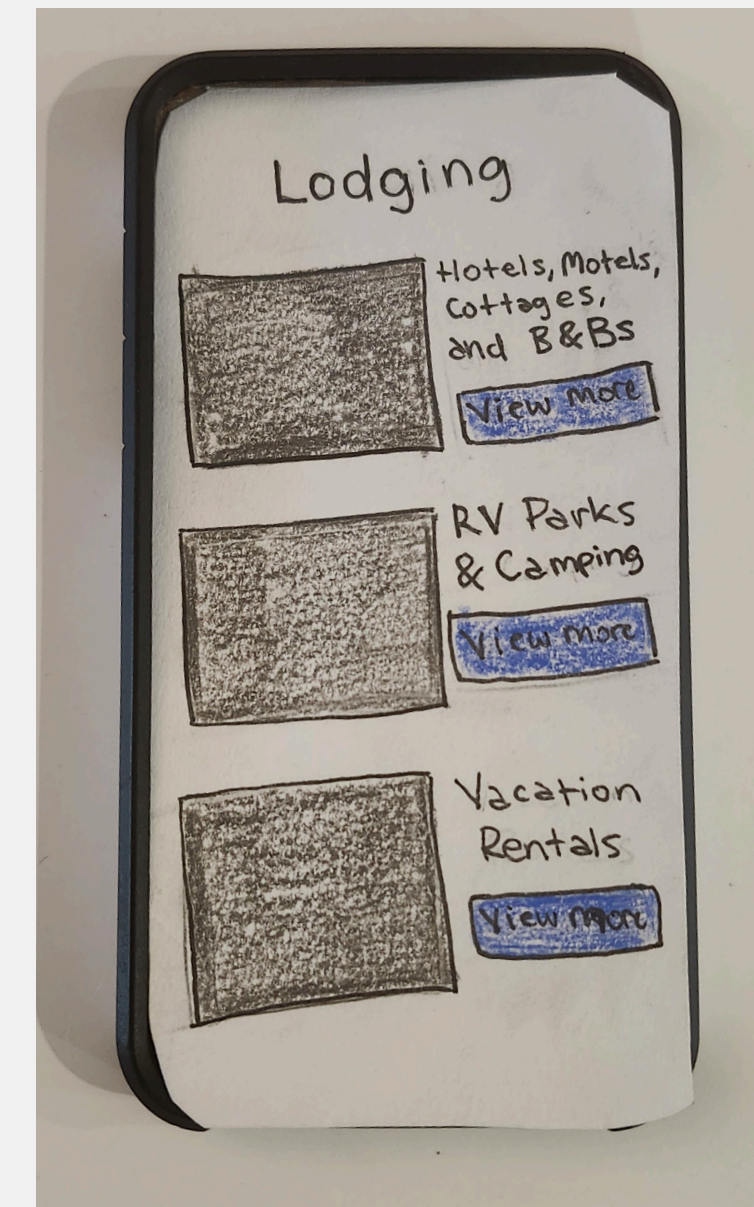 Lodging
Hotels, Motels,
Cottages,
and B&Bs
View more
RV Parks
& Camping
View more
Vacation
Rentals
View more